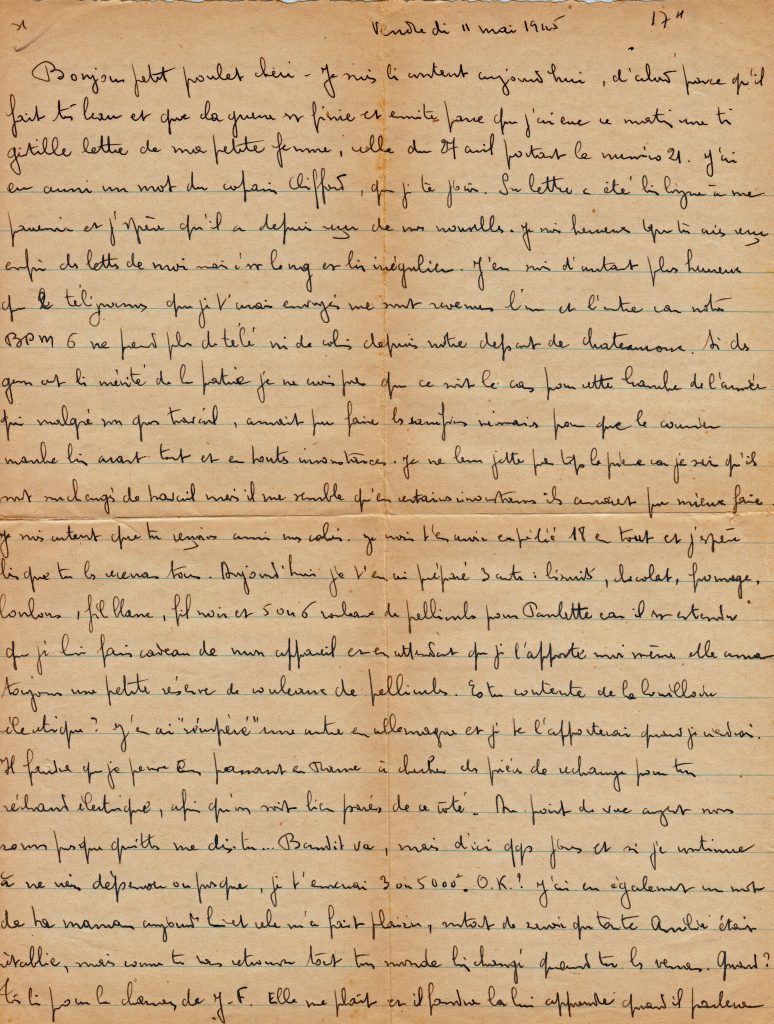 Vendredi 11 mai 1945 17"
Bonjour petit poulet chéri - Je suis bi content aujourd'hui, d'abord parce qu'il
fait très beau et que la guerre est finie et ensuite parce que j'ai eue ce matin une ti
gitille lettre de ma petite femme, celle du 27 avril portant le numéro 21. J'ai
eu aussi un mot du copain Clifford, que je te joins. Sa lettre a été bi longue à me
parvenir et j'espère qu'il a depuis reçu de nos nouvelles. Je suis heureux que tu aies reçu
enfin des lettres de moi mais c'est long et bien irrégulier. J'en suis d'autant plus heureux
que 2 télégrammes que je t'avais envoyés me sont revenus l'un et l'autre car notre
BPM 6 ne prend plus de télé ni de colis depuis notre départ de chateauroux. Si des
gens ont bi mérité de la patrie je ne crois pas que ce soit le cas pour cette branche de l'armée
qui malgré son gros travail, aurait pu faire les pour que le courrier
marche bien avant tout et en toutes circonstances. Je ne leur jette pas trop la pierre car je sais qu'ils
sont surchargés de travail mais il me semble qu'en certaines circonstances ils auraient pu mieux faire.
Je suis content que tu reçoives aussi mes colis. Je crois t'en avoir expédié 18 en tout et j'espère
bi que tu les recevras tous. Aujourd'hui je t'en ai préparé 3 autres : biscuits, chocolat, fromage,
bonbons, fil blanc, fil noir et 5 ou 6 rouleaux de pellicules pour Paulette car il est entendu
que je lui fais cadeau de mon appareil et en attendant que je l'apporte moi même elle aura
toujours une petite réserve de rouleaux de pellicules. Es tu contente de la bouilloire
électrique? J'en ai "récupéré" une autre en allemagne et je te l'apporterai quand je viendrai.
Il faudra que je pense en passant en à chercher des pièces de rechange pour ton
réchaud électrique, afin qu'on soit bien parés de ce côté. Au point de vue argent nous
sommes presque quittes me dis-tu... Bandit va, mais d'ici qqs jours et si je continue
à ne rien dépenser ou presque, je t'enverrai 3 ou 5000. O.K.? J'ai eu également un mot
de ta maman aujourd'hui et cela m'a fait plaisir, surtout de savoir que tante Amélie était
rétablie, mais comme tu vas retrouver tout ton monde bi changé quand tu les verras. Quand?
Très bi pour la chanson de J-F. Elle me plaît et il faudra la lui apprendre quand il parlera